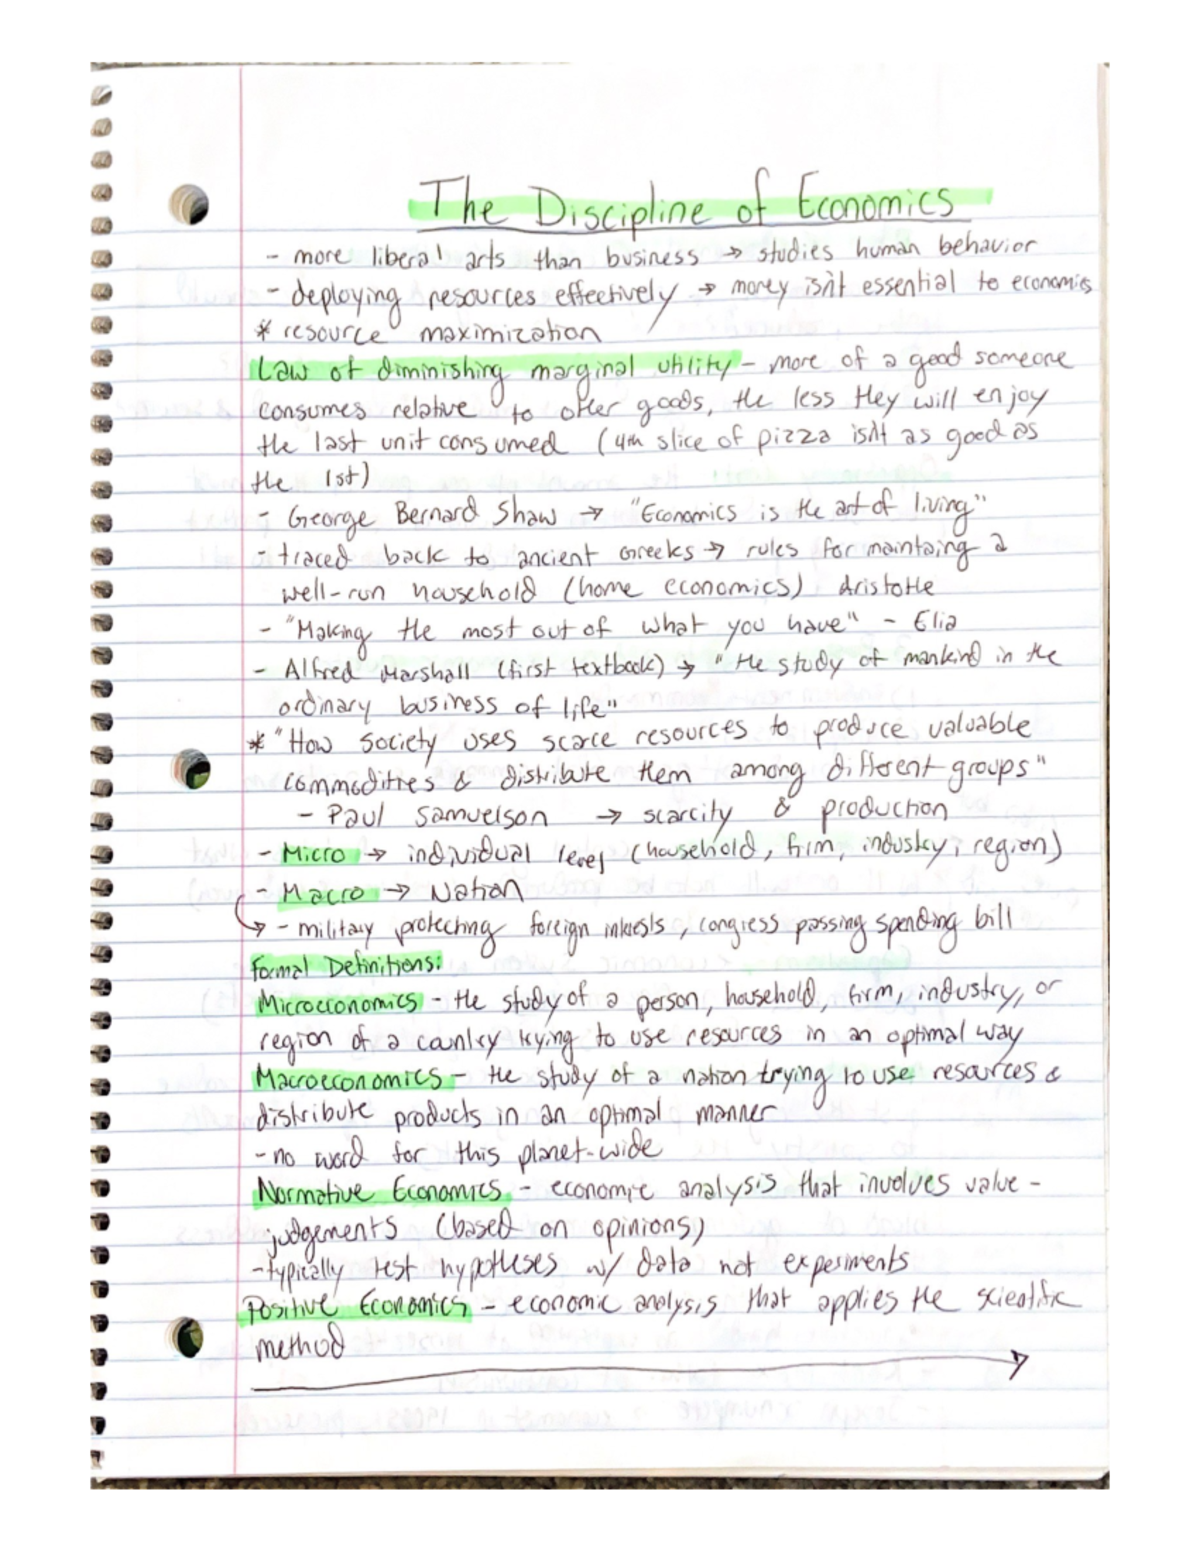 The Discipline of Economics
- more liberal arts than business → studies human behavior
- deploying resources effectively → money isn't essential to economies
* resource maximization
Law of diminishing marginal utility - more of a good someone
consumes relative to other goods, the less they will enjoy
the last unit consumed (4th slice of pizza isn't as good as
the 1st)
- George Bernard Shaw → "Economics is the art of living"
- traced back to ancient Greeks → rules for maintaing a
well-run household (home economics) Aristotle
- "Making the most out of what you have" - Elia
- Alfred Marshall (first textbook) → "the study of mankind in the
ordinary business of life"
* "How society uses scarce resources to produce valuable
commodities & distribute them among different groups"
- Paul Samuelson → scarcity & production
- Micro → individual level (household, firm, industry, region)
- Macro → Nation
→ - military protecting foreign interests, congress passing spending bill
Formal Definitions:
Microeconomics - the study of a person, household, firm, industry, or
region of a country trying to use resources in an optimal way
Macroeconomics - the study of a nation trying to use resources &
distribute products in an optimal manner
- no word for this planet-wide
Normative Economics - economic analysis that involves value -
judgements (based on opinions)
- typically test hypotheses w/ data not experiments
Positive Economics - economic analysis that applies the scientific
method